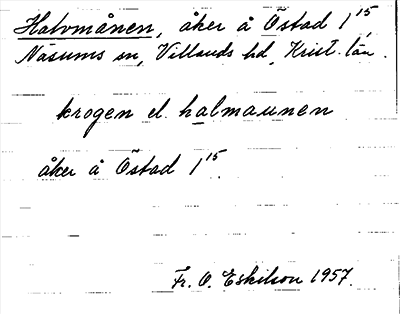 Halvmånen, åker å Östad 1¹⁵,
Näsums sn, Villands hd, Krist. län.
krogen el. halmaunen
åker å Östad 1¹⁵.
Fr. O. Eskilson 1957.